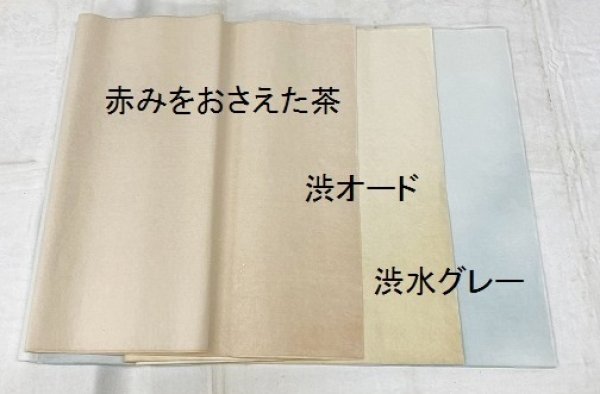 赤みをおさえた茶
渋オード
渋水グレー